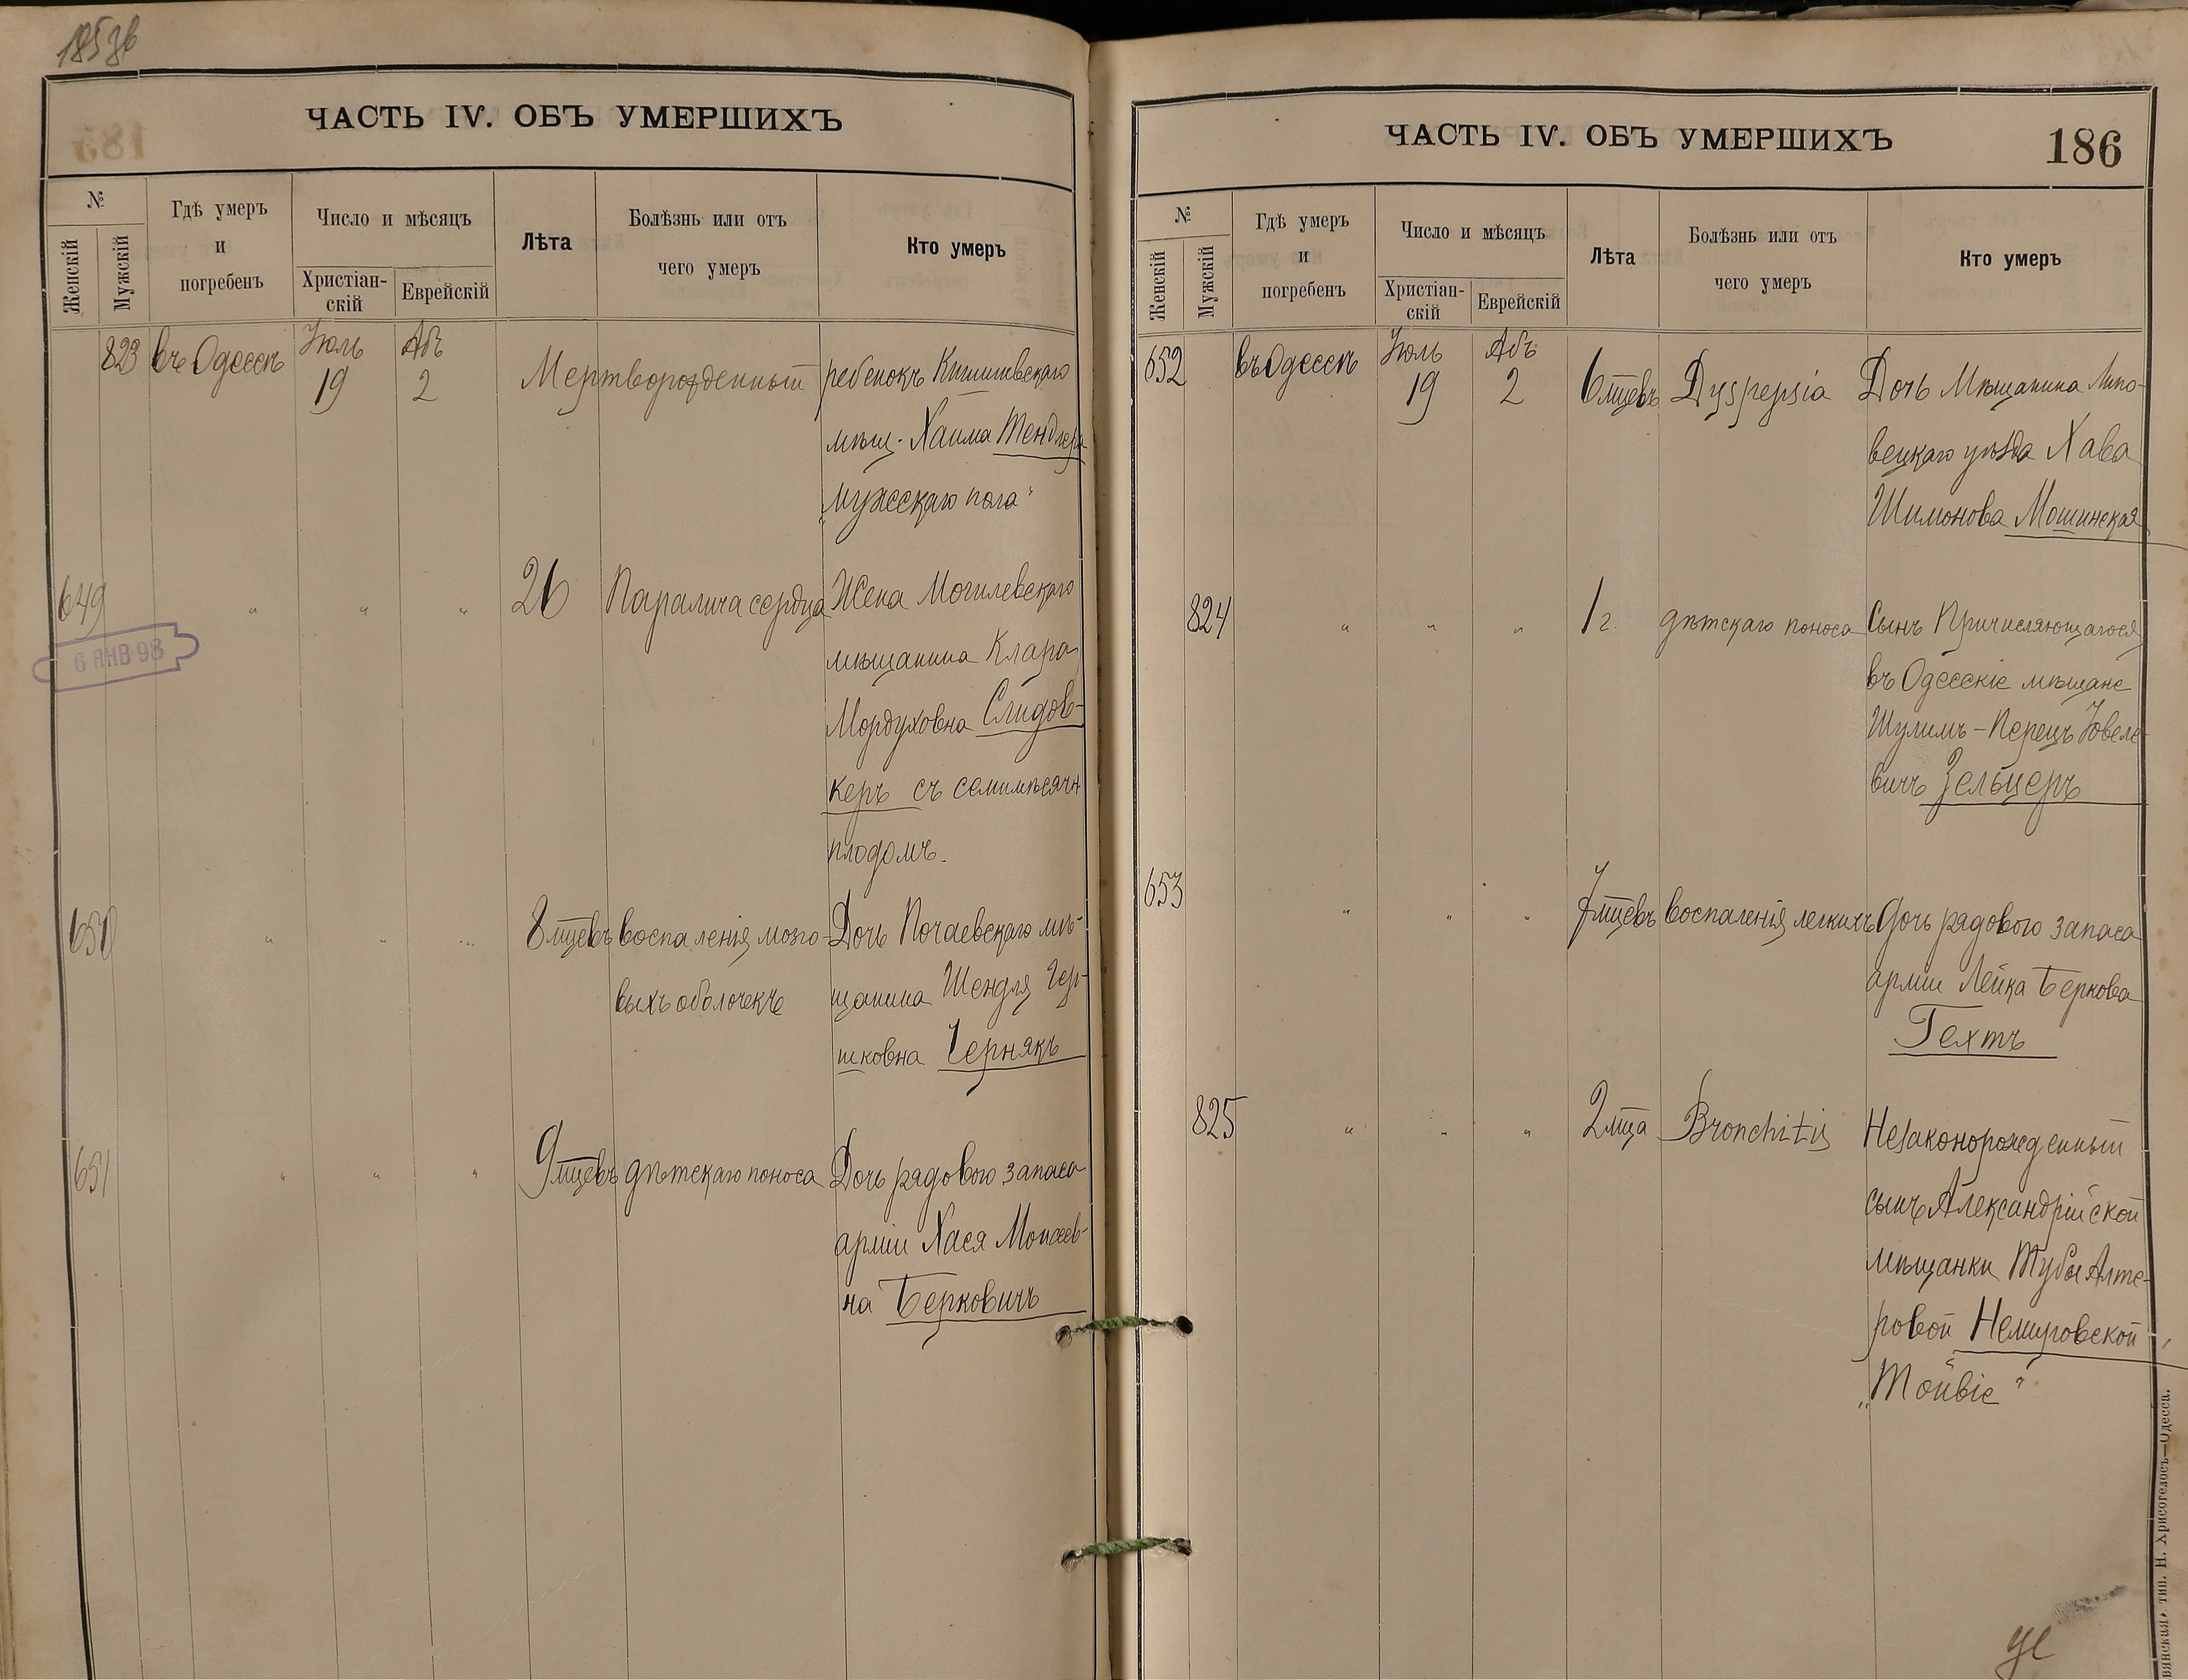 185 об
ЧАСТЬ IV. ОБЪ УМЕРШИХЪ
№
Женскій
Мужскій
Гдѣ умеръ
и
погребенъ
Число и мѣсяцъ
Христіан-
скій
Еврейскій
Лѣта
Болѣзнь или отъ
чего умеръ
Кто умеръ
823 въ Одессѣ Іюль 19 Абъ 2 Мертворожденный ребенокъ Кишиневскаго
мѣщ. Хаима Тендлера
"мужескаго пола"
649 " " " 26 Паралича сердца Жена Могилевскаго
6 ЯНВ 98
мѣщанина Клара
Мордуховна Слидов-
керъ съ семимѣсячн
плодомъ.
650 " " " 8 мцевъ воспаленія мозго- Дочь Почаевскаго мѣ-
выхъ оболочекъ щанина Шендля Гер-
шковна Чернякъ
651 " " " 9 мцевъ дѣтскаго поноса Дочь рядового запаса
арміи Хася Моисеев-
на Берковичъ
ЧАСТЬ IV. ОБЪ УМЕРШИХЪ
186
№
Женскій
Мужскій
Гдѣ умеръ
и
погребенъ
Число и мѣсяцъ
Христіан-
скій
Еврейскій
Лѣта
Болѣзнь или отъ
чего умеръ
Кто умеръ
652 въ Одессѣ Іюль 19 Абъ 2 6 мцевъ Dyspepsia Дочь Мѣщанина Липо-
вецкаго уѣзда Хава
Шимонова Мошинская
824 " " " 1 г. дѣтскаго поноса Сынъ Причисляющагося
въ Одесскіе мѣщане
Шулимъ-Перецъ Іовеле-
вичъ Зельцеръ
653 " " " 7 мцевъ воспаленія легкихъ Дочь рядового запаса
арміи Лейка Беркова
Гехтъ
825 " " " 2 мца Bronchitis Незаконорожденный
сынъ Александрійской
мѣщанки Тубы Алте-
ровой Немировской
"Тойвіе"
тип. Н. Хрисогелосъ—Одесса.